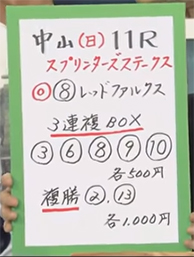 中山(日)11R
スプリンターズステークス
◎⑧レッドファルクス
3連複BOX
③⑥⑧⑨⑩
各500円
複勝②.⑬
各1.000円